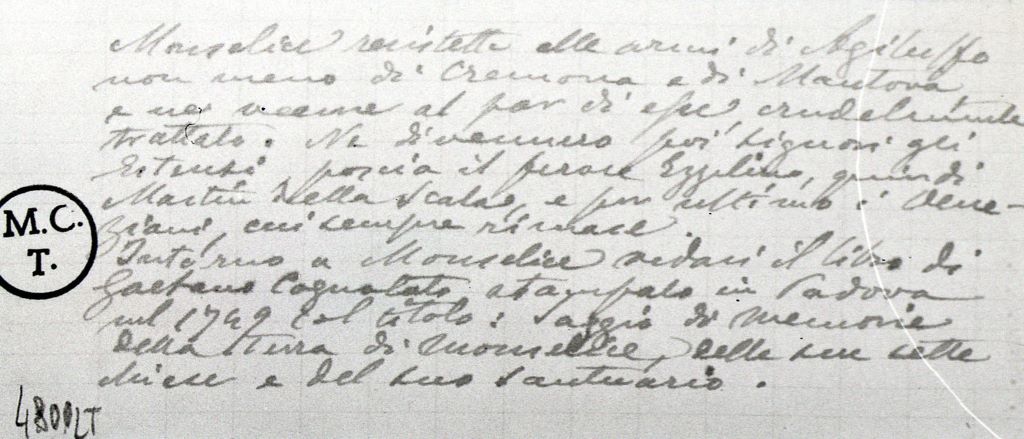 Monselice resistette alle armi di Agilulfo
non meno di Cremona e di Mantova
e ne venne al par di esse crudelmente
trattato. Ne divennero poi signori gli
Estensi, poscia il feroce Ezzelino, quindi
Martin della Scala, e per ultimo i Vene-
ziani, cui sempre rimase.
Intorno a Monselice vedasi il libro di
Gaetano Cognolato stampato in Padova
nel 1749 col titolo: Saggio di memorie
della terra di Monselice, delle sue sette
chiese e del suo santuario.
M.C.
T.
4800LT